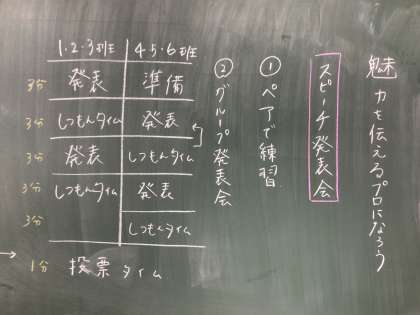 魅力を伝えるプロになろう
スピーチ発表会
①ペアで練習
②グループ発表会
1・2・3班 4・5・6班
3分 発表 準備
3分 しつもんタイム 発表
3分 発表 しつもんタイム
3分 しつもんタイム 発表
3分 しつもんタイム
1分 投票タイム